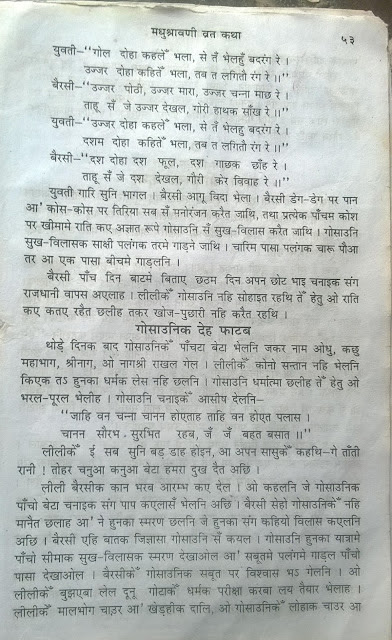 मधुश्रावणी व्रत कथा
५३
युवती–“गोल दोहा कहलेँ भला, से तँ भेलहुँ बदरंग रे ।
उज्जर दोहा कहितेँ भला, तब त लगिती रंग रे ।।”
बैरसी–“उज्जर पोठी, उज्जर मारा, उज्जर चन्ना माछ रे ।
ताहू सँ जे उज्जर देखल, गोरी हाथक साँख रे ।।
युवती–“उज्जर दोहा कहलेँ भला, से तँ भेलहुँ बदरंग रे ।
दशम दोहा कहितेँ भला, तब त लगिती रंग रे ।।
बैरसी–“दश दोहा दश फूल, दश गाछक छाँह रे ।
ताहू सँ जे दश देखल, गोरी केर विवाह रे ।।”
युवती गारि सुनि भागल । बैरसी आगू विदा भेला । बैरसी डेग-डेग पर पान
आ’ कोस-कोस पर तिरिया सब सँ मनोरंजन करैत जाथि, तथा प्रत्येक पाँचम कोश
पर खीमामे राति कए अज्ञात रूपे गोसाउनि सँ सुख-विलास करैत जाथि । गोसाउनि
सुख-विलासक साक्षी पलंगक तरमे गाड़ने जाथि । चारिम पासा पलंगक चारू पौआ
तर आ एक पासा बीचमे गाड़लनि ।
बैरसी पाँच दिन बाटमे बिताए छठम दिन अपन छोट भाइ चनाइक संग
राजधानी वापस अएलाह । लीलीकेँ गोसाउनि नहि सोहाइत रहथि तेँ हेतु ओ राति
कए कतए रहैत छलीह तकर खोज-पुछारी नहि करैत रहथि ।
गोसाउनिक देह फाटब
थोड़े दिनक बाद गोसाउनिकेँ पाँचटा बेटा भेलनि जकर नाम ओधु, कछु
महाभाग, श्रीनाग, ओ नागश्री राखल गेल । लीलीकेँ कोनो सन्तान नहि भेलनि
किएक तऽ हुनका धर्मक लेस नहि छलनि । गोसाउनि धर्मात्मा छलीह तेँ हेतु ओ
भरल-पूरल भेलीह । गोसाउनि चनाइकेँ आसीष देलनि–
“जाहि वन चन्ना चानन होएताह ताहि वन होएत पलास ।
चानन सौरभ सुरभित रहब, जँ जँ बहत बसात ।।”
लीलीकेँ ई सब सुनि बड़ डाह होइन, आ अपन सासुकेँ कहथि–गे ताँती
रानी ! तोहर चनुआ कनुआ बेटा हमरा दुख दैत अछि ।
लीली बैरसीक कान भरब आरम्भ कए देल । ओ कहलनि जे गोसाउनिक
पाँचो बेटा चनाइक संग पाप कएलासँ भेलनि अछि । बैरसी सेहो गोसाउनिकेँ नहि
मानैत छलाह आ’ ने हुनका स्मरण छलनि जे हुनका संग कहियो विलास कएलनि
अछि । बैरसी एहि बातक जिज्ञासा गोसाउनि सँ कयल । गोसाउनि हुनका यात्रामे
पाँचो सीमाक सुख-विलासक स्मरण देखाओल आ’ सबूतमे पलंगमे गाडुल पाँचो
पासा देखाओल । बैरसीकेँ गोसाउनिक सबूत पर विश्वास भऽ गेलनि । ओ
लीलीकेँ बुझएबा लेल दूनू गोटाकेँ धर्मक परीक्षा करबा लय तैयार भेलाह ।
लीलीकेँ मालभोग चाउर आ’ खेड़हीक दालि, ओ गोसाउनिकेँ लोहाक चाउर आ